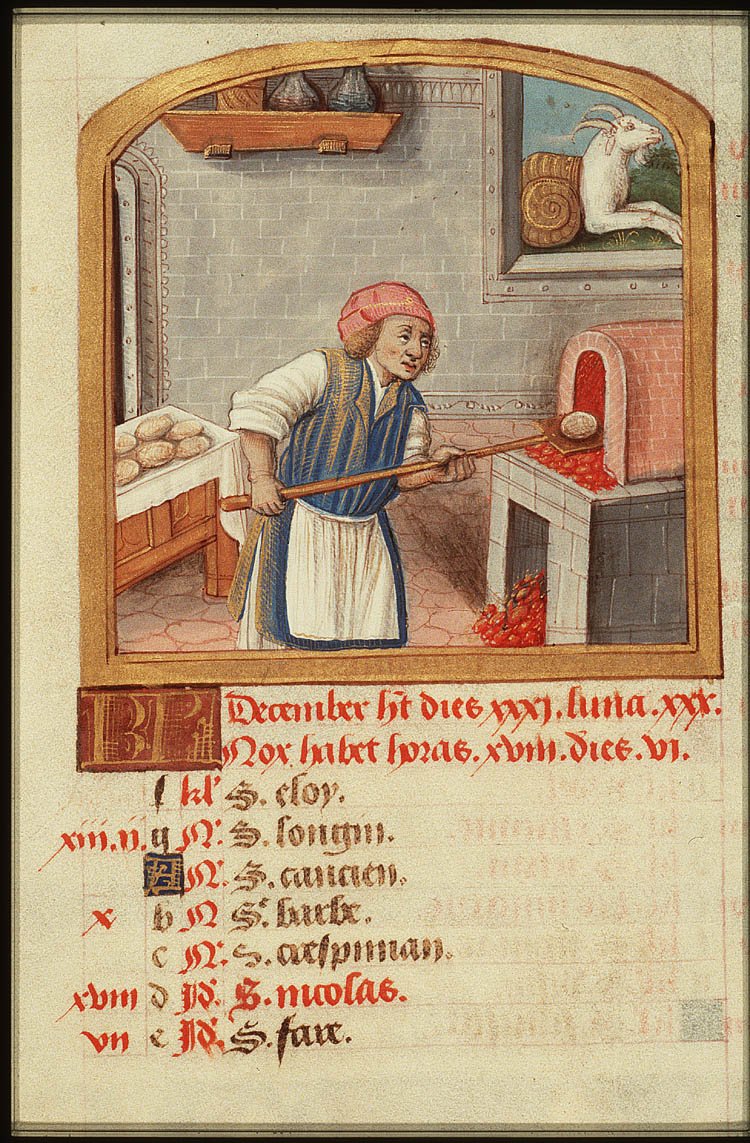 KL December hт dies xxxj. luna. xxx.
Nox habet horas. xviii. dies. vi.
f kl' S. eloy.
xiii. ii. g N. S. longin.
A N. S. cancien.
x b N Sᵉ. barbe.
c N. S. crespinian.
xviii d Id'. S. nicolas.
vii e Id'. S. fare.